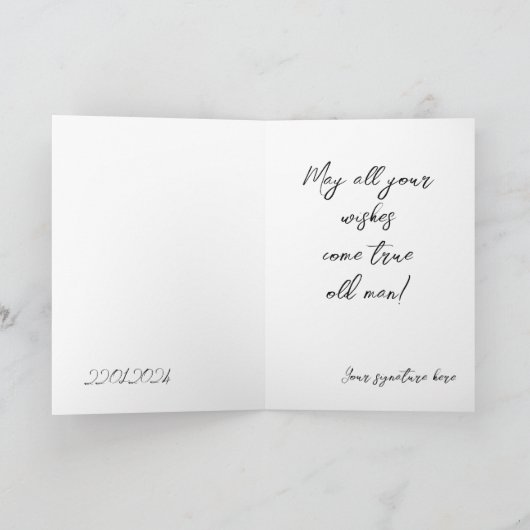 May all your
wishes
come true
old man!
22012024
Your signature here